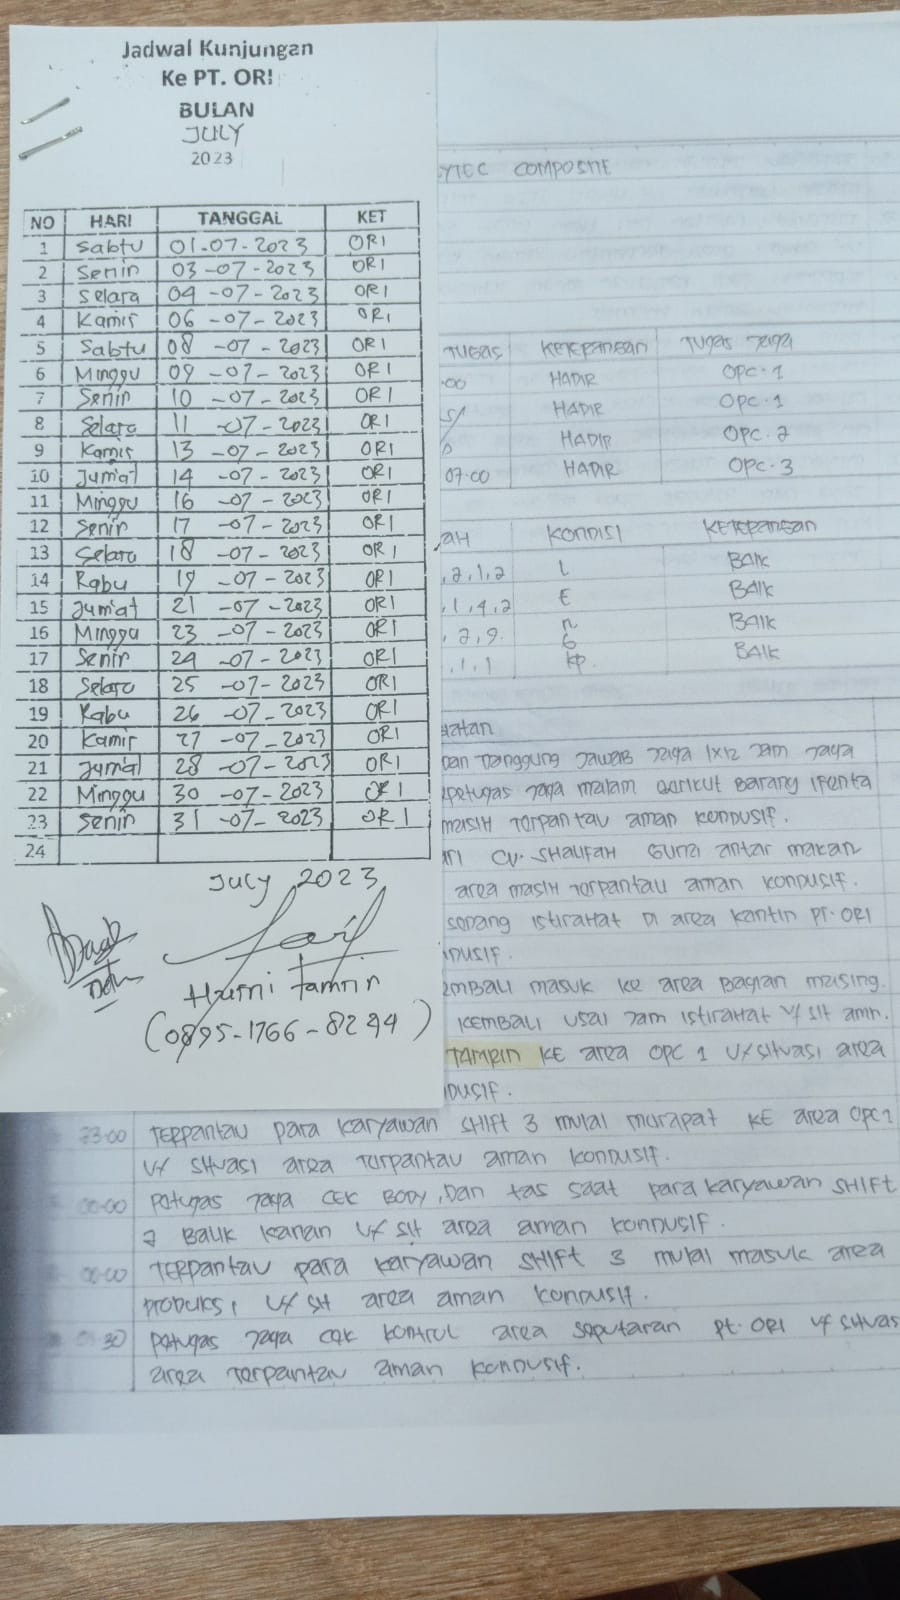 Jadwal Kunjungan
Ke PT. ORI
BULAN
JULY
2023
NO HARI TANGGAL KET
1 Sabtu 01-07-2023 ORI
2 Senin 03-07-2023 ORI
3 Selasa 04-07-2023 ORI
4 Kamis 06-07-2023 ORI
5 Sabtu 08-07-2023 ORI
6 Minggu 09-07-2023 ORI
7 Senin 10-07-2023 ORI
8 Selasa 11-07-2023 ORI
9 Kamis 13-07-2023 ORI
10 Jum'at 14-07-2023 ORI
11 Minggu 16-07-2023 ORI
12 Senin 17-07-2023 ORI
13 Selasa 18-07-2023 ORI
14 Rabu 19-07-2023 ORI
15 Jum'at 21-07-2023 ORI
16 Minggu 23-07-2023 ORI
17 Senin 24-07-2023 ORI
18 Selasa 25-07-2023 ORI
19 Rabu 26-07-2023 ORI
20 Kamis 27-07-2023 ORI
21 Jum'at 28-07-2023 ORI
22 Minggu 30-07-2023 ORI
23 Senin 31-07-2023 ORI
24
July 2023
Husni Tamrin
(0895-1766-8244)
YTEC COMPOSITE
TUGAS KETERANGAN TUGAS JAGA
.00 HADIR OPC.1
HADIR OPC.1
HADIR OPC.2
07.00 HADIR OPC.3
AH KONDISI KETERANGAN
,2,1,2 L BAIK
,1,4,2 E BAIK
,2,9. n BAIK
,1,1 KP. BAIK
atan
dan Tanggung Jawab Jaga 1x12 Jam Jaga
petugas Jaga malam barikut barang
masih Terpantau aman kondusif.
CV. SHALIFAH antar makan
area masih Terpantau aman kondusif.
sedang istirahat di area kantin PT. ORI
DUSIF.
EMBALI masuk ke area bagian masing.
KEMBALI usai Jam istirahat V/ sit amn.
TAMRIN KE area OPC 1 V/ situasi area
DUSIF.
23.00 TERPANTAU para karyawan SHIFT 3 mulai merapat KE area OPC 2
V/ situasi area Terpantau aman kondusif.
00.00 petugas Jaga CEK BODY, Dan tas saat para karyawan SHIFT
2 Balik kanan V/ sit area aman kondusif.
TERPANTAU para karyawan SHIFT 3 mulai masuk area
produksi, V/ sit area aman kondusif.
30 petugas Jaga cek kontrol area seputaran PT. ORI V/ situas
area Terpantau aman kondusif.